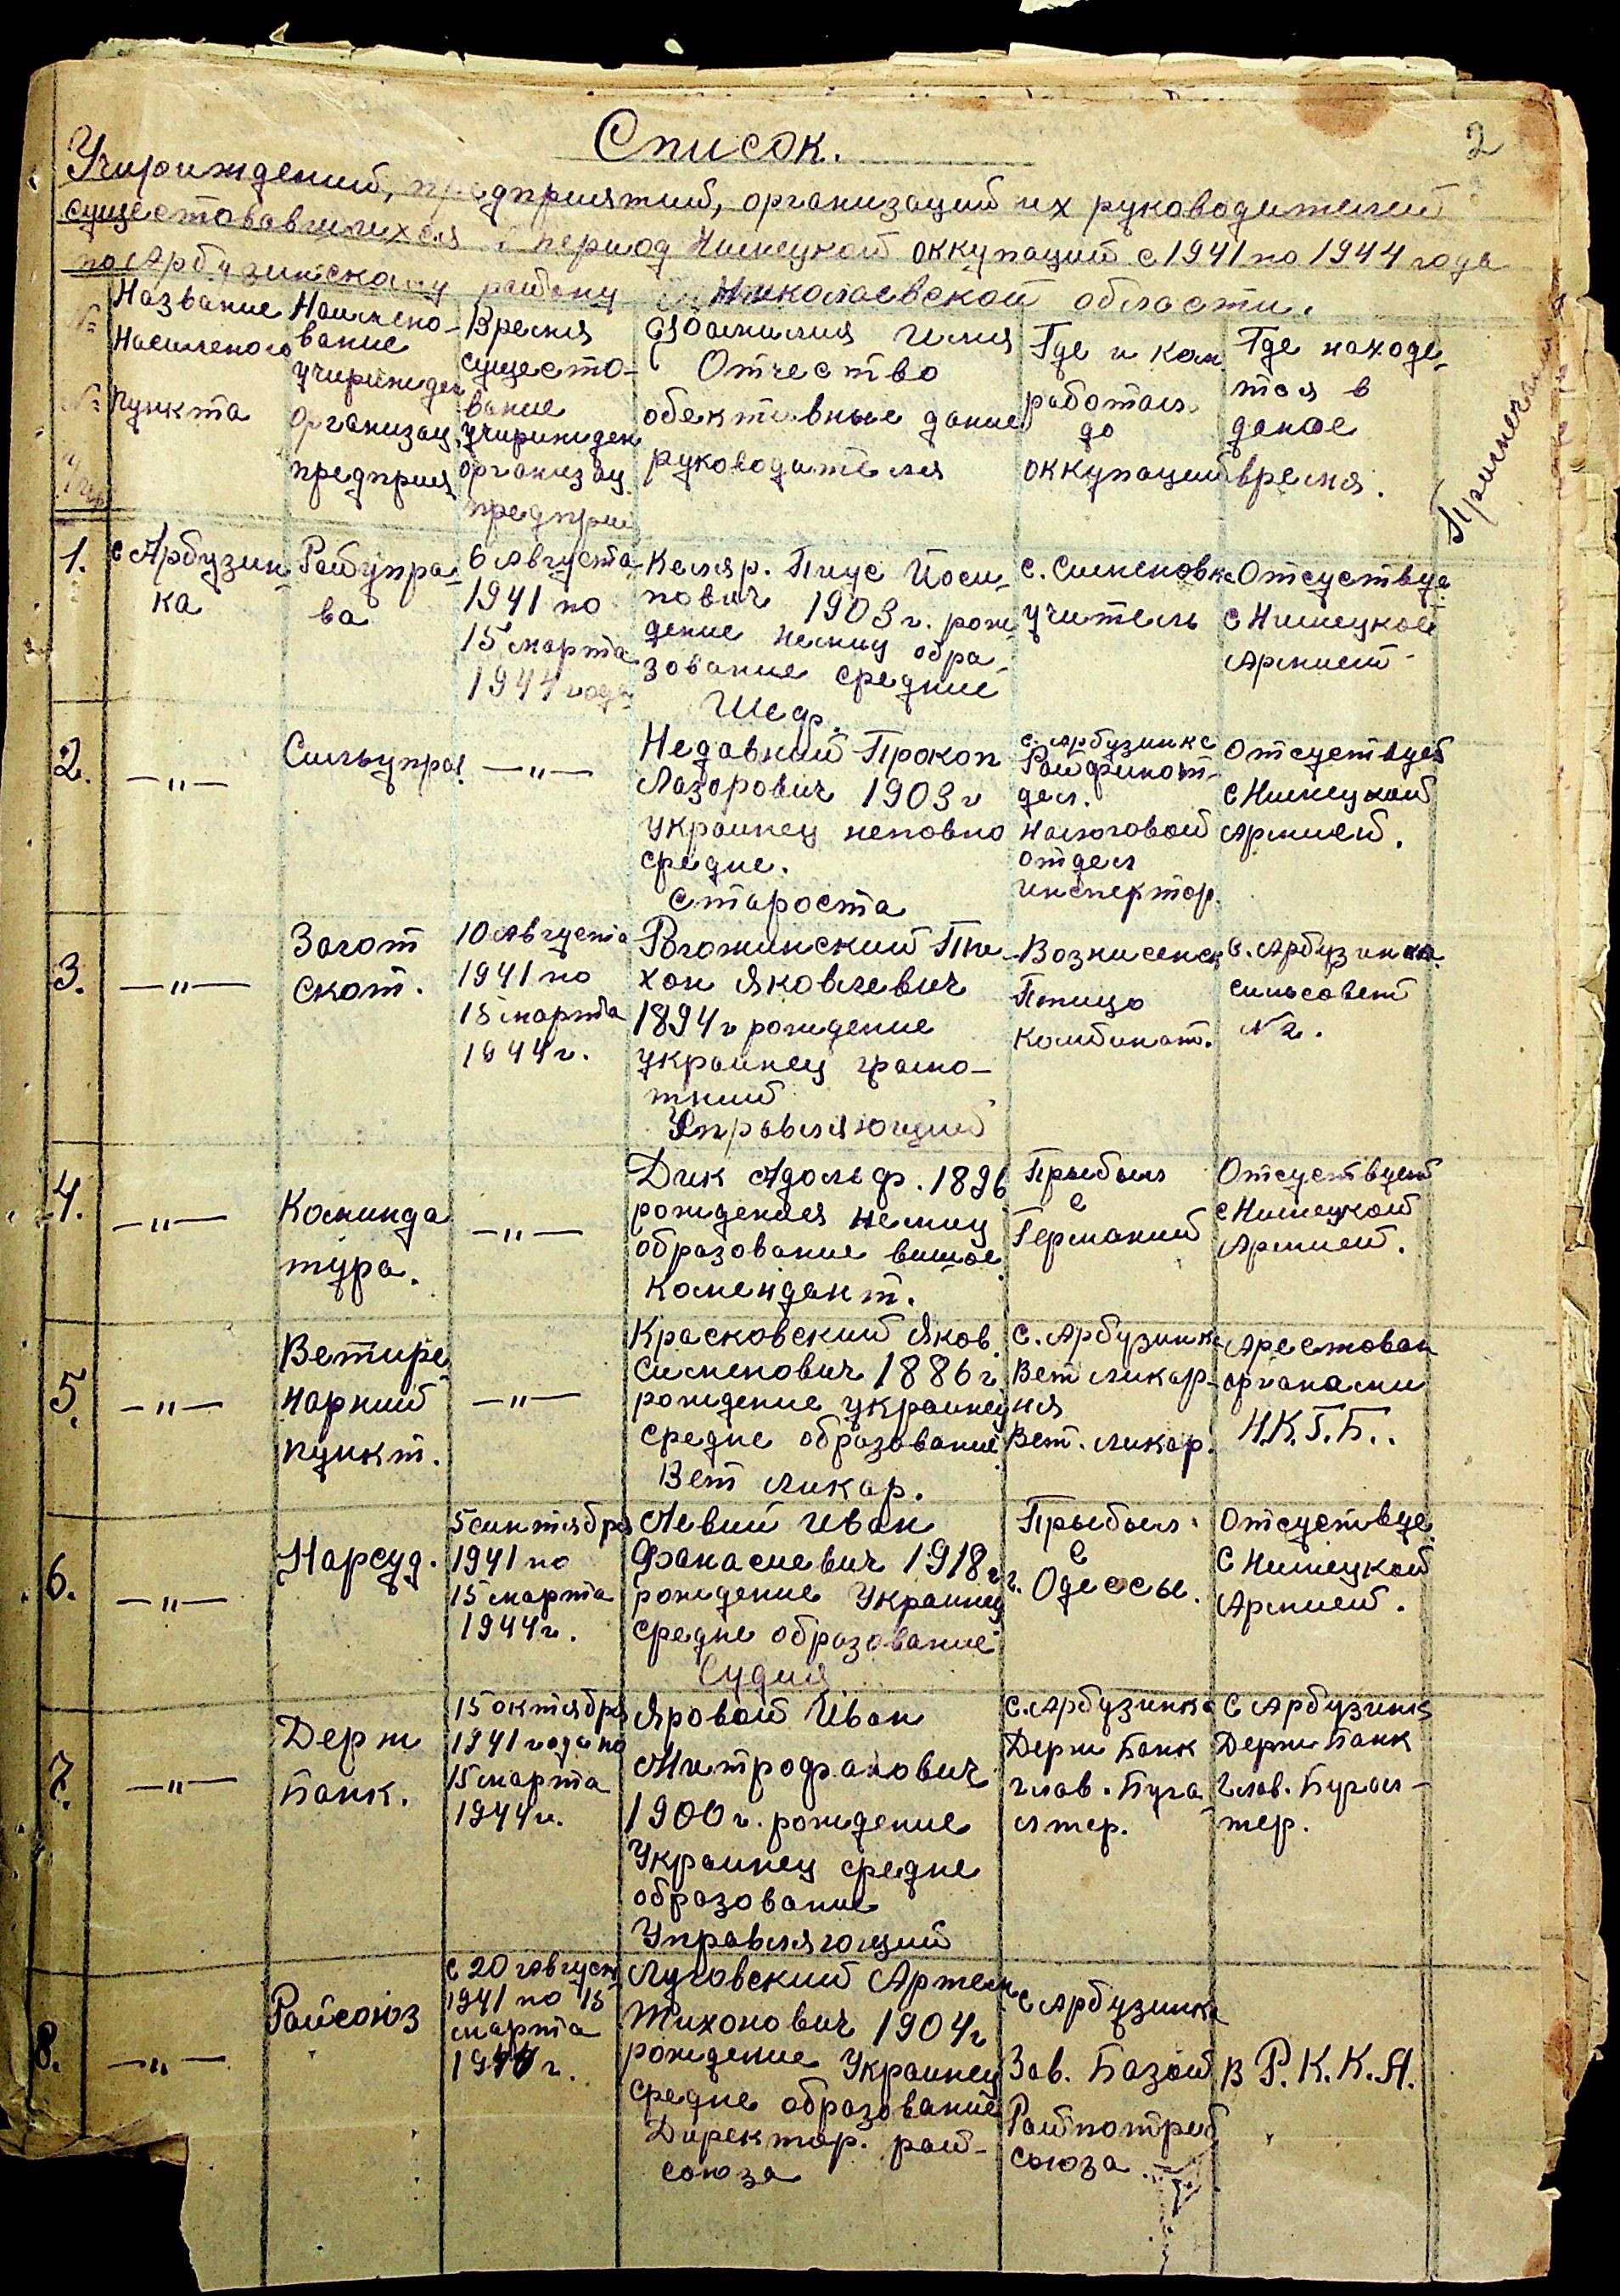 2
Список.
Учириждений, предприятий, организаций их руководителей
существовавшихся в период Нимецкой оккупаций с 1941 по 1944 года
по Арбузинскому району Николаевской области.
№
№
Название
Насиленого
пункта
Наимено-
вание
учирижден
организац.
предприя
Время
существо-
вание
учирижден
организац
предприя
Фамилия Имя
Отчество
обективные дание
руководителя
Где и кем
работал
до
оккупаций
Где находе-
тся в
даное
время.
Примечание
1.
с Арбузин-
ка
Райупра-
ва
6 Августа
1941 по
15 марта
1944 года
Келяр. Пиус Йоси-
пович 1903 г. рож-
дение немиц обра-
зование средние
Шеф.
с. Симоновка
учитель
Отсуствуе
с Нимецкой
Армией
2.
—„—
Сильупра!
—„—
Недавний Прокоп
Лазарович 1903 г
украинец неповно
средне.
Староста
с. Арбузинке
Райфинот-
дел.
Налоговой
отдел
инспектор.
Отсуствует
с Нимецкой
Армией.
3.
—„—
Загот
скот.
10 Августа
1941 по
15 марта
1944 г.
Рогожинский Ти-
хон Яковлевич
1894 г рождение
украинец грамо-
тний
Управляющий
Вознисенск
Птицо
Комбинат.
с. Арбузинка.
сильсовет
№ 2.
4.
—„—
Коминда
тура.
—„—
Дик Адольф. 1896
рождения немиц
образование вишое.
Комендант.
Прыбыл
с
Германий
Отсуствует
с Нимецкой
Армией.
5.
—„—
Ветире-
нарний
пункт.
—„—
Красковский Яков.
Сименович 1886 г
рождение украинец
средне образование
Вет ликар.
с. Арбузинка
Вет ликар-
ня
Вет. ликар.
Арестован
органами
Н.К.Г.Б..
6.
—„—
Нарсуд.
5 синтября
1941 по
15 марта
1944 г.
Левий Иван
Фанасиевич 1918 г
рождение Украинец
средне образование
Судия
Прыбыл
с
г. Одессы.
Отсуствуе
с Нимецкой
Армией.
7.
—„—
Держ
Банк.
15 октября
1941 года по
15 марта
1944 г.
Яровой Иван
Митрофанович
1900 г. рождение
Украинец средне
образование
Управляющий
с. Арбузинка
Держ Банк
глав. Буга
лтер.
с Арбузинка
Держ Банк
глав. Бугал-
тер.
8.
—„—
Райсоюз
с 20 августа
1941 по 15
марта
1944 г.
Луговский Артем
Тихонович 1904 г
рождение Украинец
средне образование
Директор. рай-
союза
с Арбузинка
Зав. Базой
Райпотриб
союза
в Р.К.К.А.